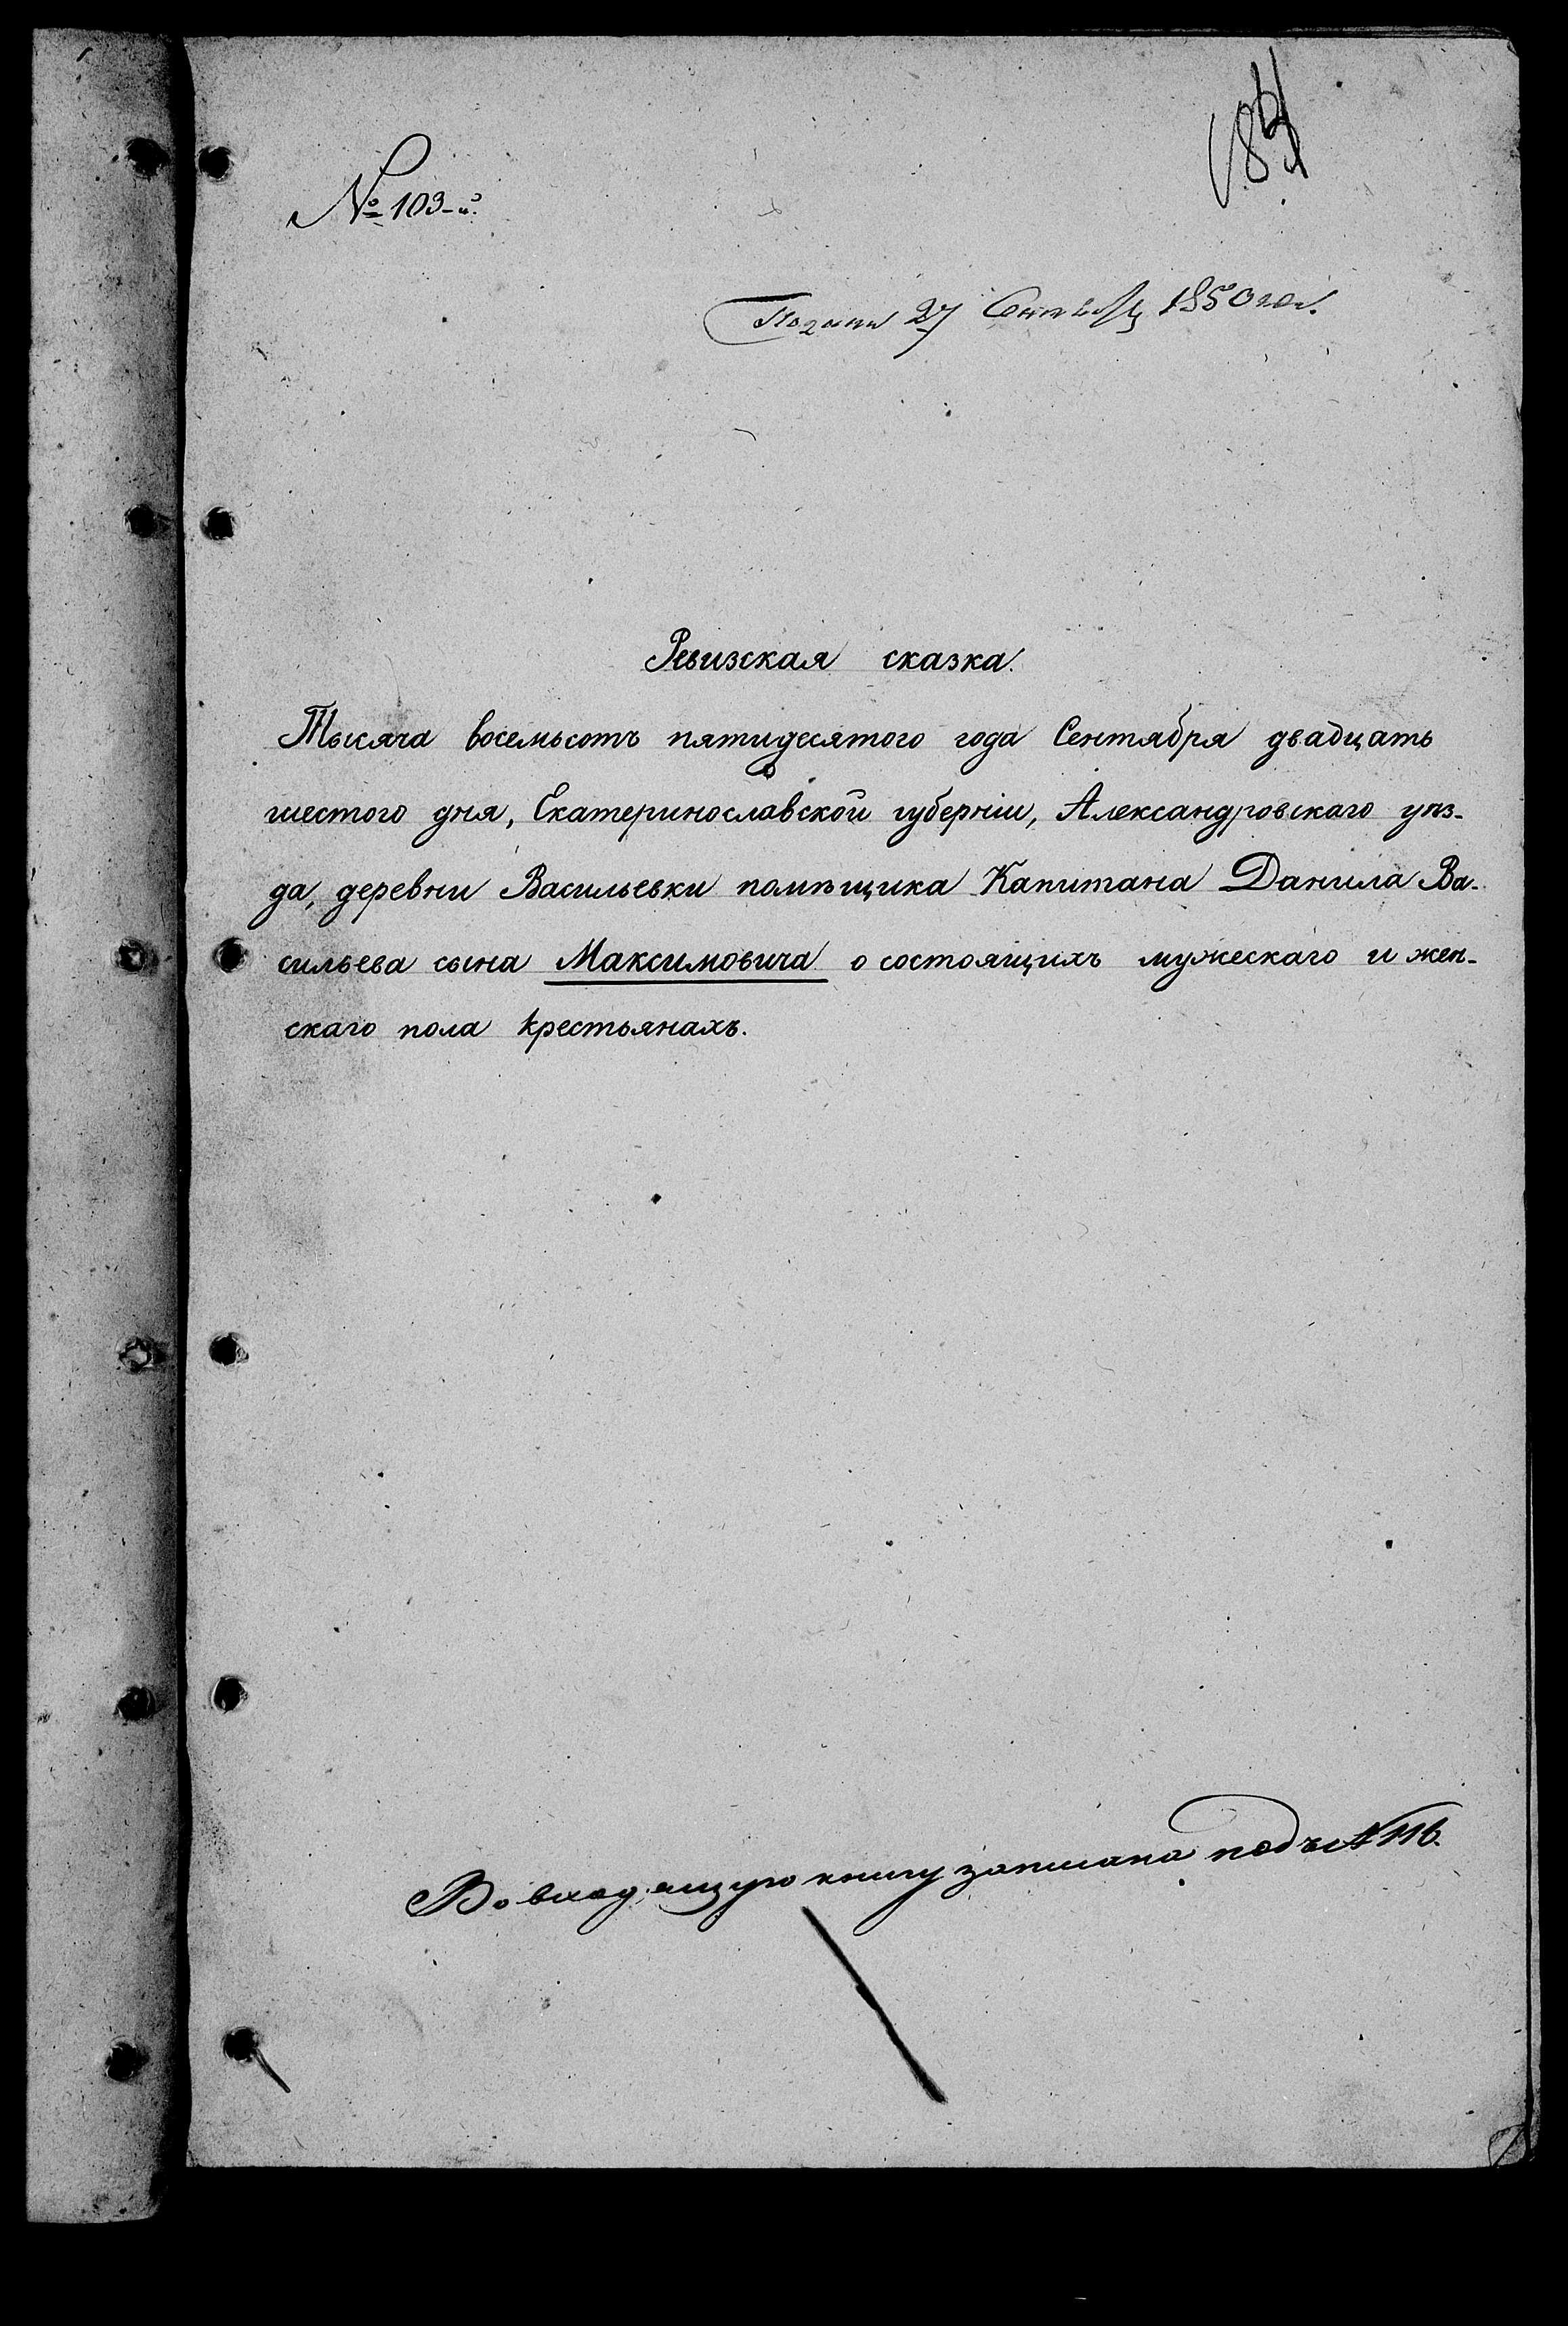 № 103-й.
Подана 27 Сентября 1850 года.
Ревизская сказка.
Тысяча восемьсотъ пятидесятого года Сентября двадцать
шестого дня, Екатеринославской губерніи, Александровскаго уѣз-
да, деревни Васильевки помѣщика Капитана Данила Ва-
сильева сына Максимовича о состоящихъ мужескаго и жен-
скаго пола крестьянахъ.
Во входящую книгу записана подъ № 116.